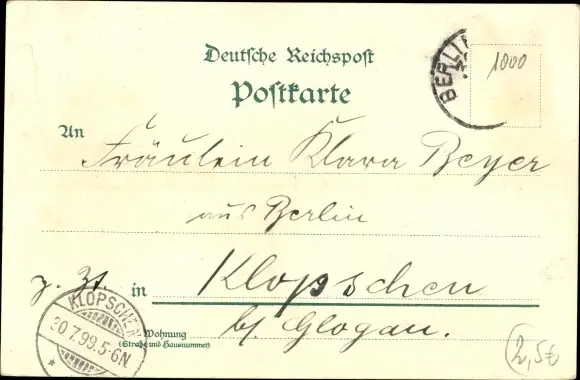 Deutsche Reichspost
Postkarte
BERLIN
1000
An
Fräulein Klara Beyer
aus Berlin
z. Zt. in Klopschen
KLOPSCHEN
30.7.99.5-6N.
Wohnung
(Straße und Hausnummer)
b/ Glogau.
2,50